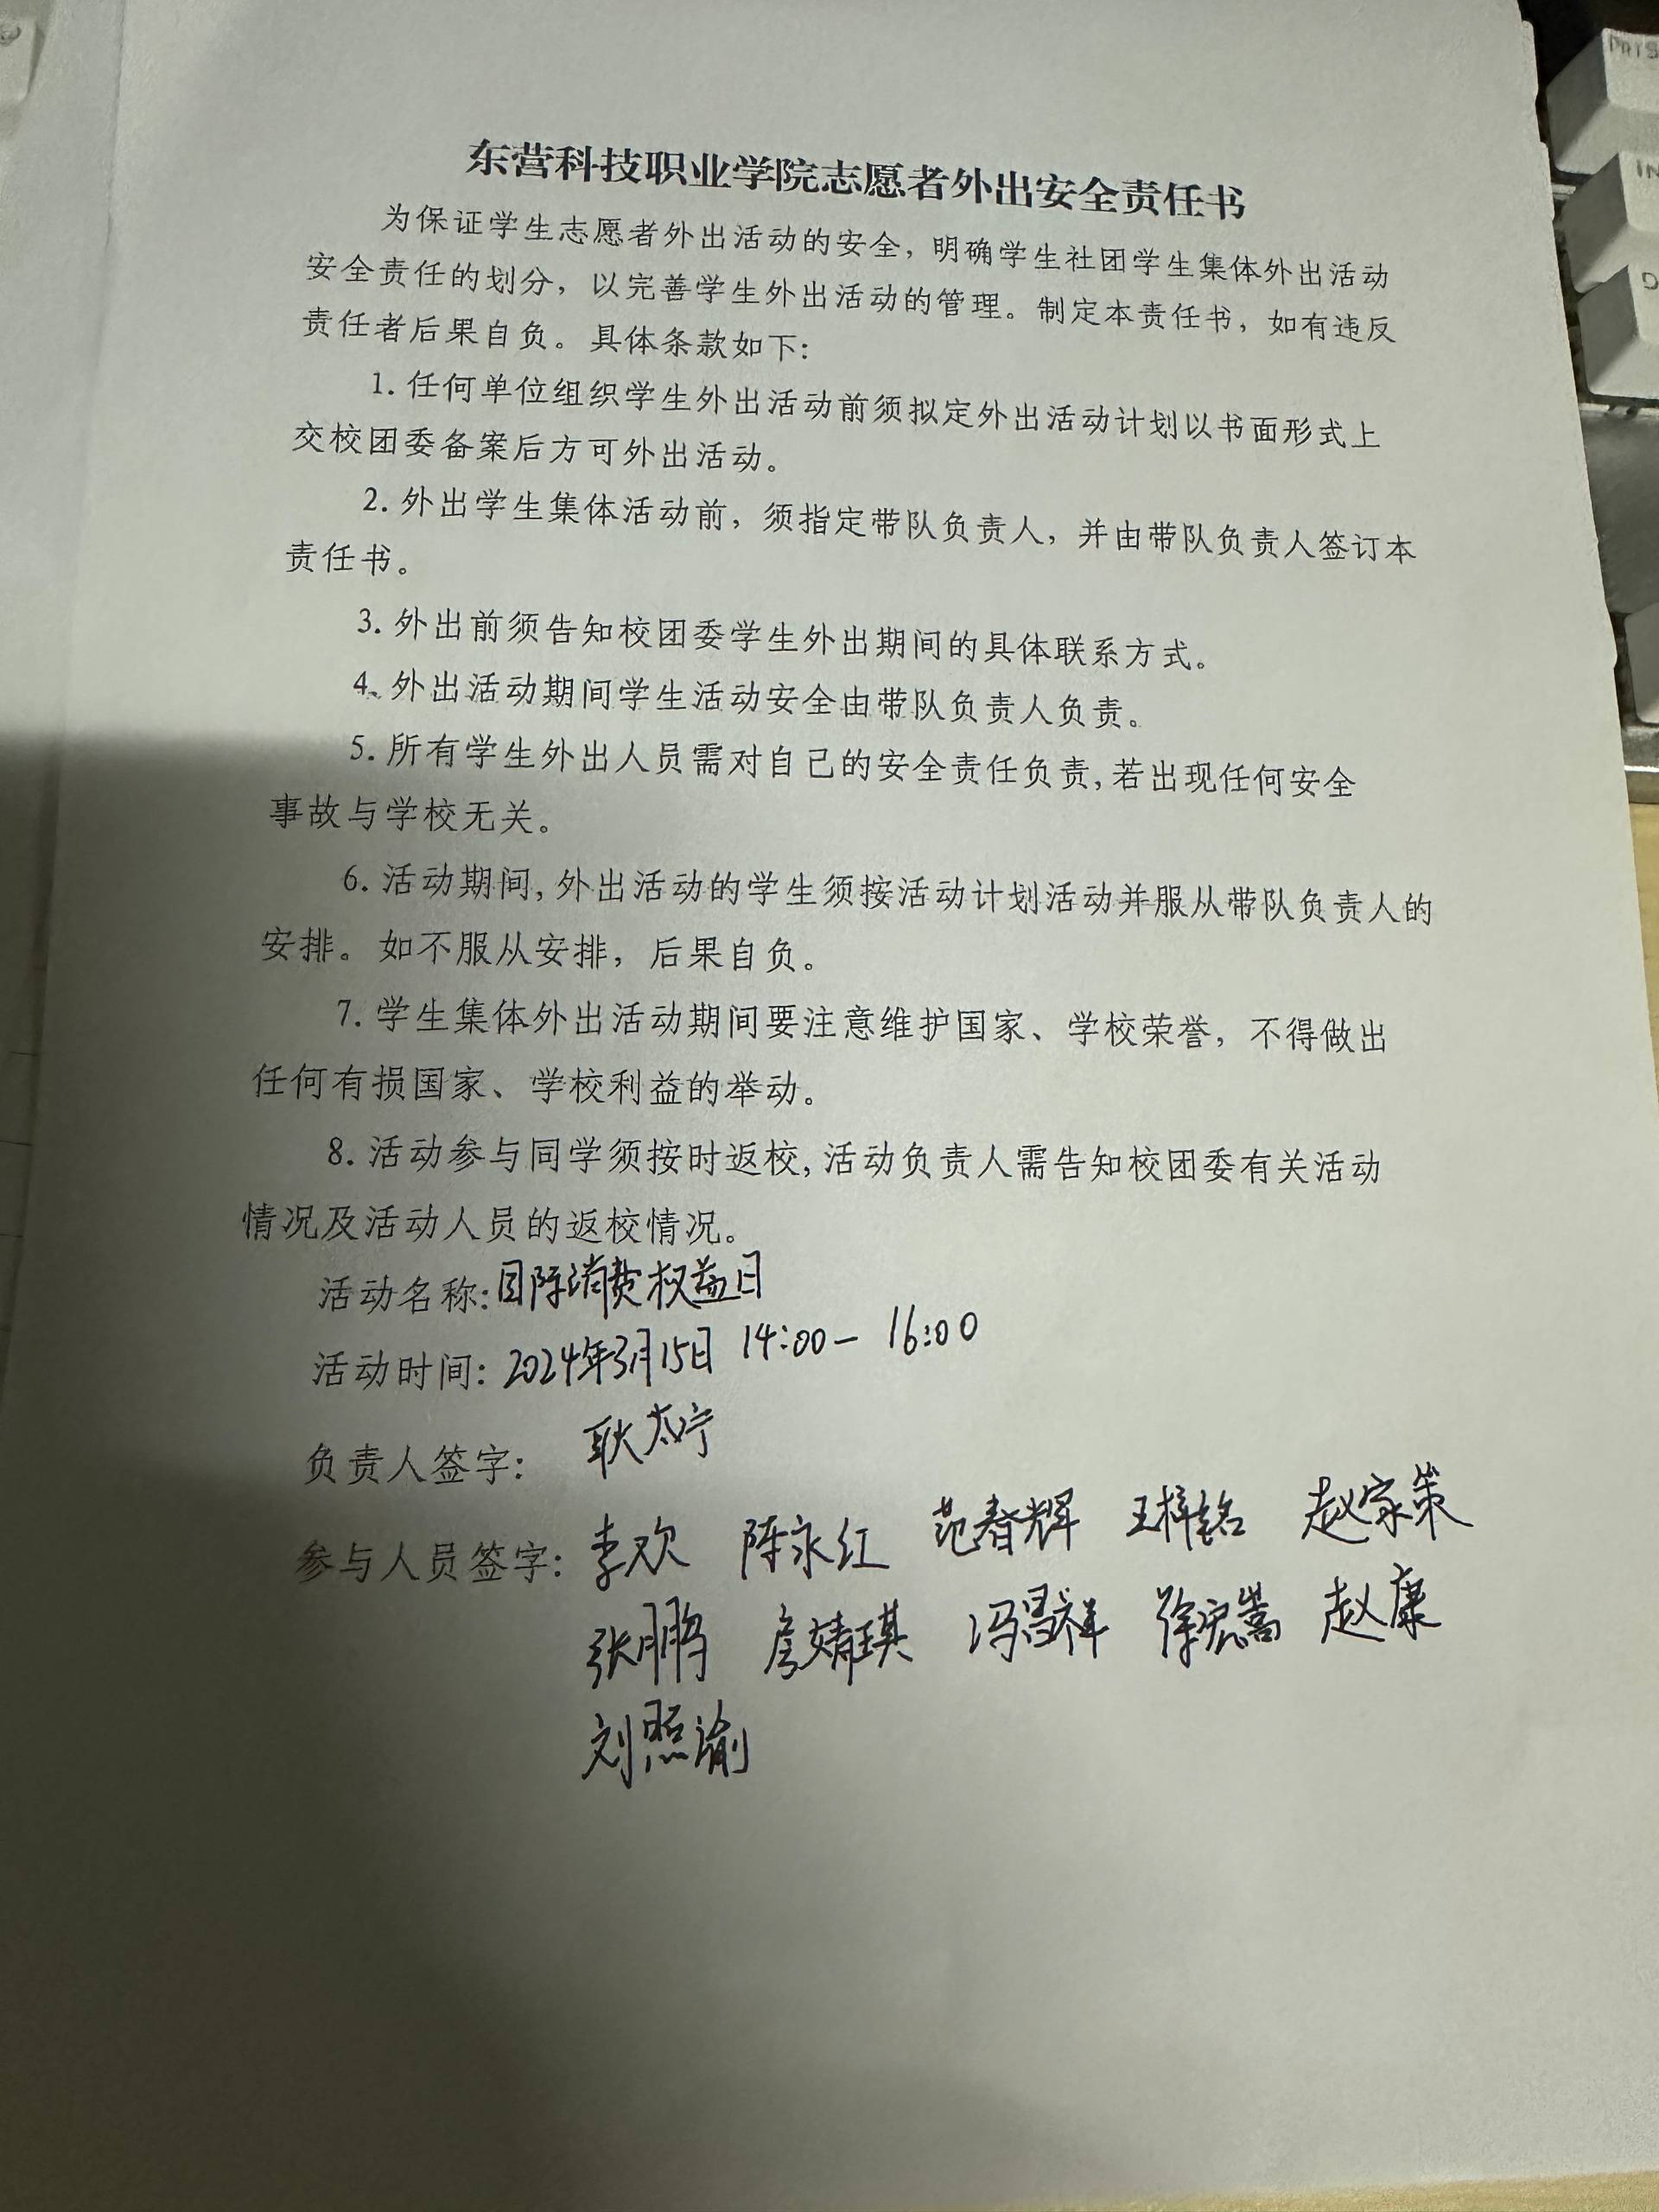 东营科技职业学院志愿者外出安全责任书
为保证学生志愿者外出活动的安全，明确学生社团学生集体外出活动
安全责任的划分，以完善学生外出活动的管理。制定本责任书，如有违反
责任者后果自负。具体条款如下：
1.任何单位组织学生外出活动前须拟定外出活动计划以书面形式上
交校团委备案后方可外出活动。
2.外出学生集体活动前，须指定带队负责人，并由带队负责人签订本
责任书。
3.外出前须告知校团委学生外出期间的具体联系方式。
4、外出活动期间学生活动安全由带队负责人负责。
5.所有学生外出人员需对自己的安全责任负责,若出现任何安全
事故与学校无关。
6.活动期间,外出活动的学生须按活动计划活动并服从带队负责人的
安排。如不服从安排，后果自负。
7.学生集体外出活动期间要注意维护国家、学校荣誉，不得做出
任何有损国家、学校利益的举动。
8.活动参与同学须按时返校,活动负责人需告知校团委有关活动
情况及活动人员的返校情况。
活动名称:国际消费权益日
活动时间: 2024年3月15日 14:00— 16:00
负责人签字: 耿太宁
参与人员签字: 李欢 陈永红 范春辉 王梓铭 赵家策
张鹏 詹婧琪 冯昌祥 徐宏嵩 赵康
刘照谕